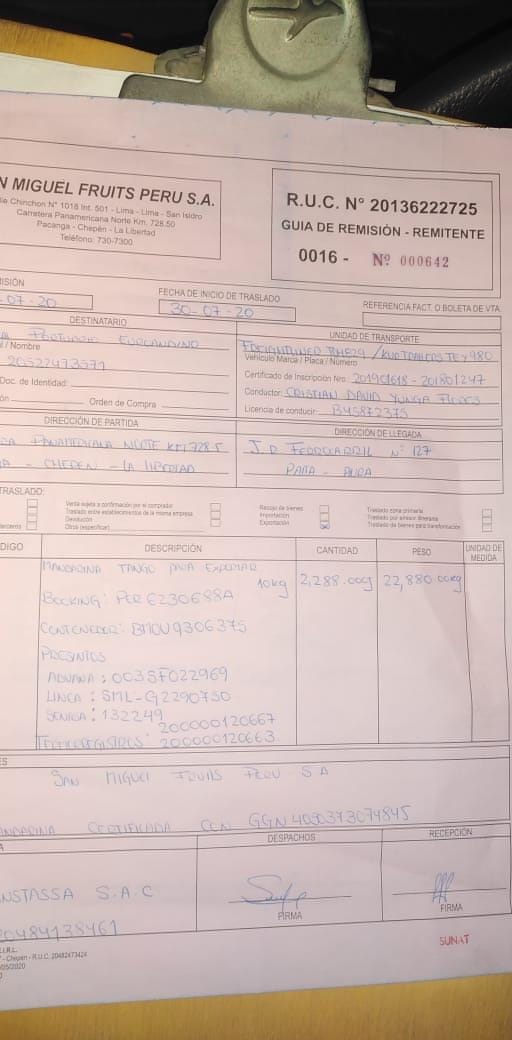 N MIGUEL FRUITS PERU S.A.
Chinchon N° 1018 Int. 501 - Lima - Lima - San Isidro
Carretera Panamericana Norte Km. 728.50
Pacanga - Chepén - La Libertad
Teléfono: 730-7300
R.U.C. N° 20136222725
GUIA DE REMISIÓN - REMITENTE
0016 - Nº 000642
-07-20
FECHA DE INICIO DE TRASLADO
30-07-20
REFERENCIA FACT. O BOLETA DE VTA.
DESTINATARIO
EUROANDINO
/ Nombre
20522473571
Doc. de Identidad:
Orden de Compra
UNIDAD DE TRANSPORTE
Vehículo Marca / Placa / Número
Certificado de Inscripción Nro. 201901618 - 201801247
Conductor: CRISTIAN DAVID YUNGA FLORES
Licencia de conducir: B45872375
DIRECCIÓN DE PARTIDA
PANAMERICANA NORTE KM 728.5
- CHEPEN - LA LIBERTAD
DIRECCIÓN DE LLEGADA
J.R FERROCARRIL N° 127
PAITA - PIURA
TRASLADO:
Venta sujeta a confirmación por el comprador
Traslado entre establecimientos de la misma empresa
Devolución
Otros (especificar)
Recojo de bienes
Importación
Exportación
Traslado zona primaria
Traslado por emisor itinerante
Traslado de bienes para transformación
DIGO
DESCRIPCIÓN
CANTIDAD
PESO
UNIDAD DE MEDIDA
MANDARINA TANGO PARA EXPORTAR
10kg 2,288.00cj 22,880.00kg
BOOKING: PER6230688A
CONTENEDOR: BMOU9306375
PRESINTOS
ADUANA: 003SF022969
LINEA: SML-G2290750
SENASA: 132249
200000120667
TERMOREGISTROS 200000120663
ES
SAN MIGUEL FRUITS PERU S A
MANDARINA CERTIFICADA CON GGN 4050373074845
DESPACHOS
RECEPCIÓN
S.A.C
20484138461
FIRMA
FIRMA
SUNAT
- Chepén - R.U.C. 20482473424